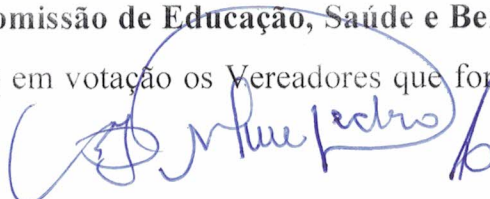 omissão de Educação, Saúde e Be
em votação os Vereadores que for